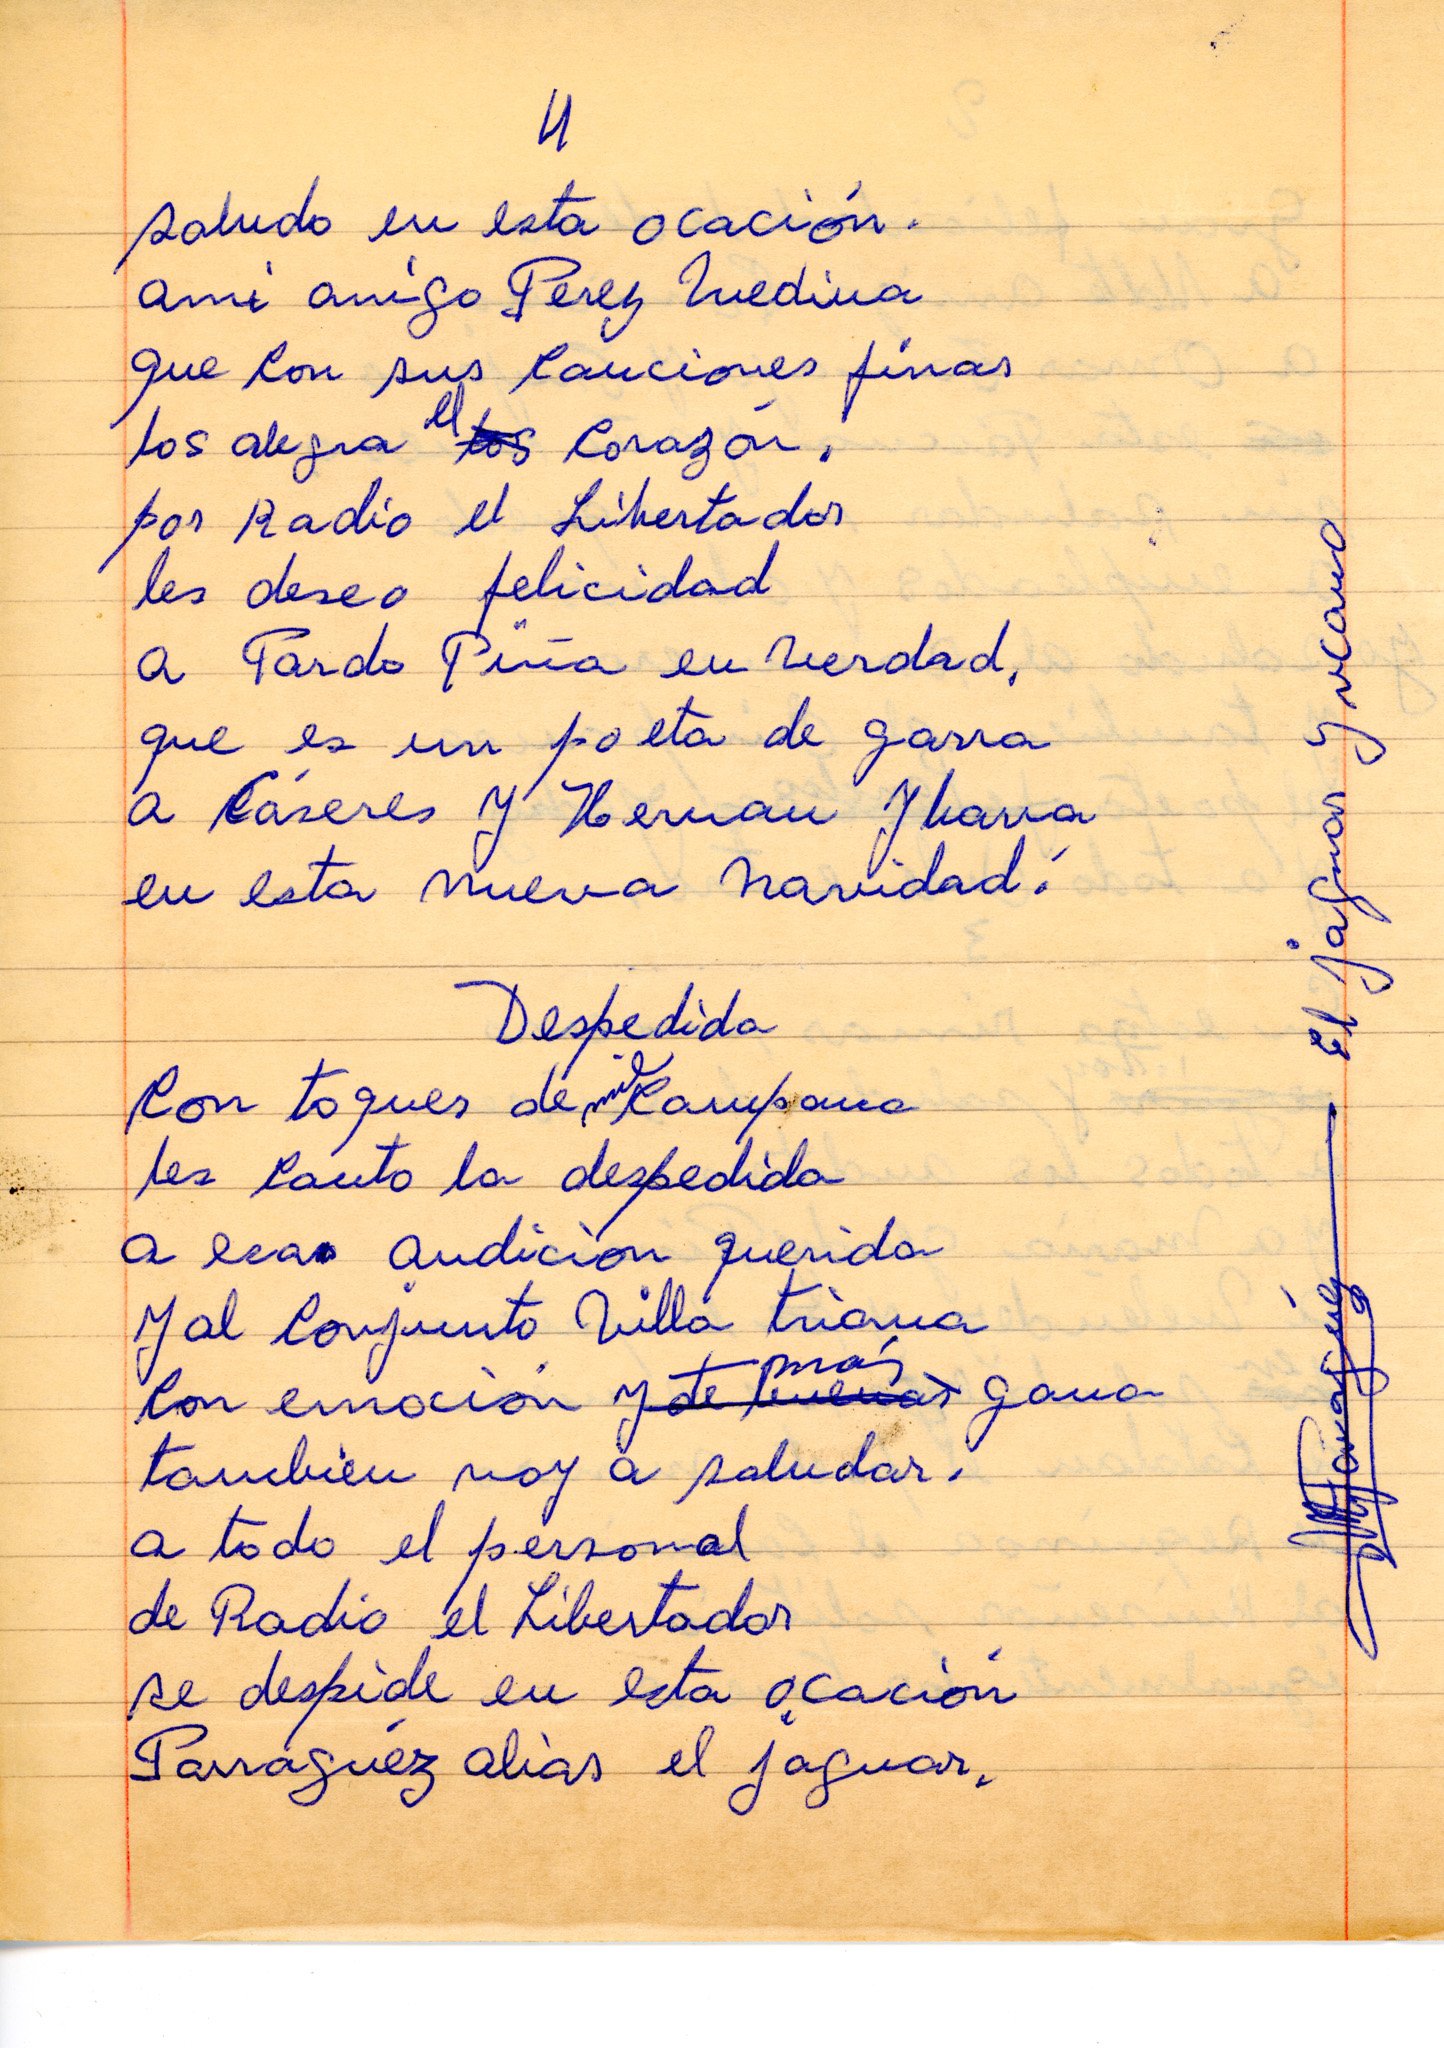 4
saludo en esta ocación.
ami amigo Perez Medina
que con sus canciones finas
los alegra el los corazón.
por Radio el Libertador
les deseo felicidad
a Pardo Piña en verdad,
que es un poeta de garra
a Cáseres y Hernan Ybarra
en esta nueva navidad.
Despedida
Con toques de mil campana
les canto la despedida
a esa audicion querida
y al conjunto Villa triana
con emoción y de buenas más gana
tambien voy a saludar.
a todo el personal
de Radio el Libertador
se despide en esta ocación
Parraguéz alias el jaguar.
El jaguar yucano
Parraguez